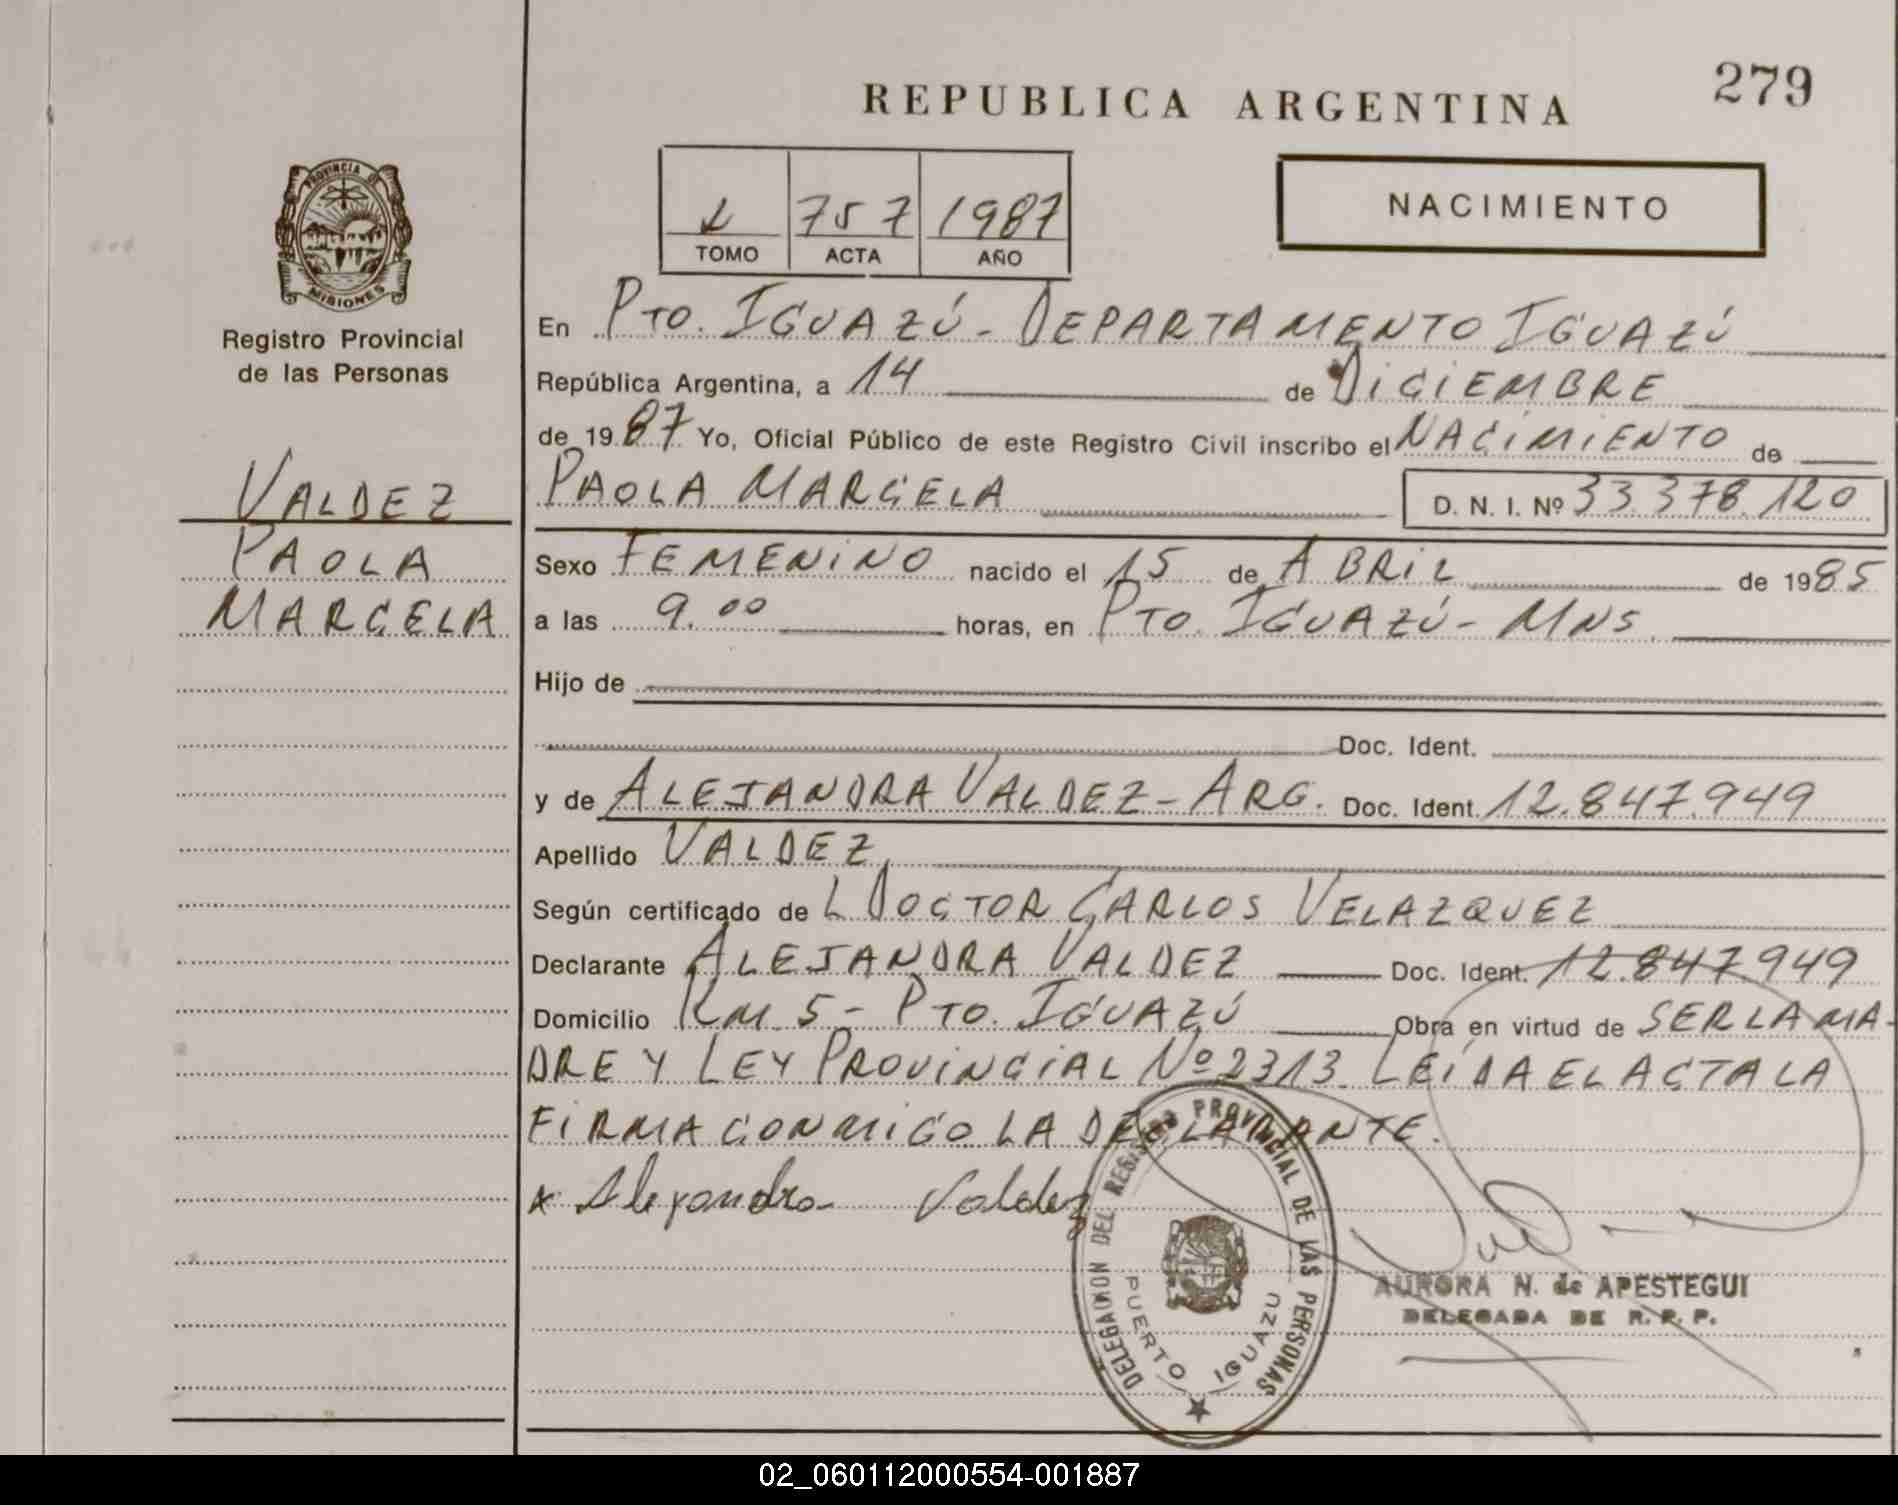 279
REPUBLICA ARGENTINA
NACIMIENTO
757 1987
TOMO ACTA AÑO
PROVINCIA DE
MISIONES
Registro Provincial
de las Personas
VALDEZ
PAOLA
MARCELA
En PTO. IGUAZÚ - DEPARTAMENTO IGUAZÚ
República Argentina, a 14 de DICIEMBRE
de 1987 Yo, Oficial Público de este Registro Civil inscribo el NACIMIENTO de
PAOLA MARCELA D. N. I. Nº 33.378.120
Sexo FEMENINO nacido el 15 de ABRIL de 1985
a las 9.00 horas, en PTO. IGUAZÚ - MNS.
Hijo de
Doc. Ident.
y de ALEJANDRA VALDEZ - ARG. Doc. Ident. 12.847.949
Apellido VALDEZ
Según certificado de L DOCTOR CARLOS VELAZQUEZ
Declarante ALEJANDRA VALDEZ Doc. Ident. 12.847949
Domicilio KM. 5 - PTO. IGUAZÚ Obra en virtud de SER LA MA-
DRE Y LEY PROVINCIAL Nº 2313. LEÍDA EL ACTA LA
FIRMA CONMIGO LA DECLARANTE.
x Alejandra Valdez
DELEGACION DEL REGISTRO PROVINCIAL DE LAS PERSONAS
PUERTO IGUAZU
AURORA N. de APESTEGUI
DELEGADA DE R. P. P.
02_060112000554-001887